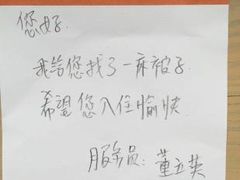 您好.
我给您找了一床被子
希望您入住愉快.
服务员: 董五英